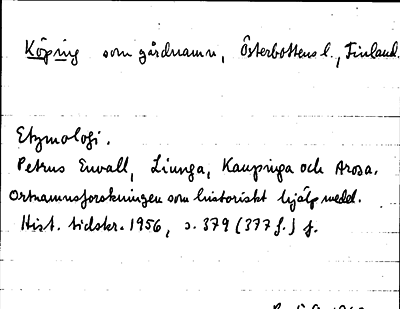 Köping som gårdnamn, Österbottens l., Finland.
Etymologi.
Petrus Envall, Liunga, Kaupinga och Arosa.
Ortnamnsforskningen som historiskt hjälpmedel.
Hist. tidskr. 1956, s. 379 (377 f.) f.